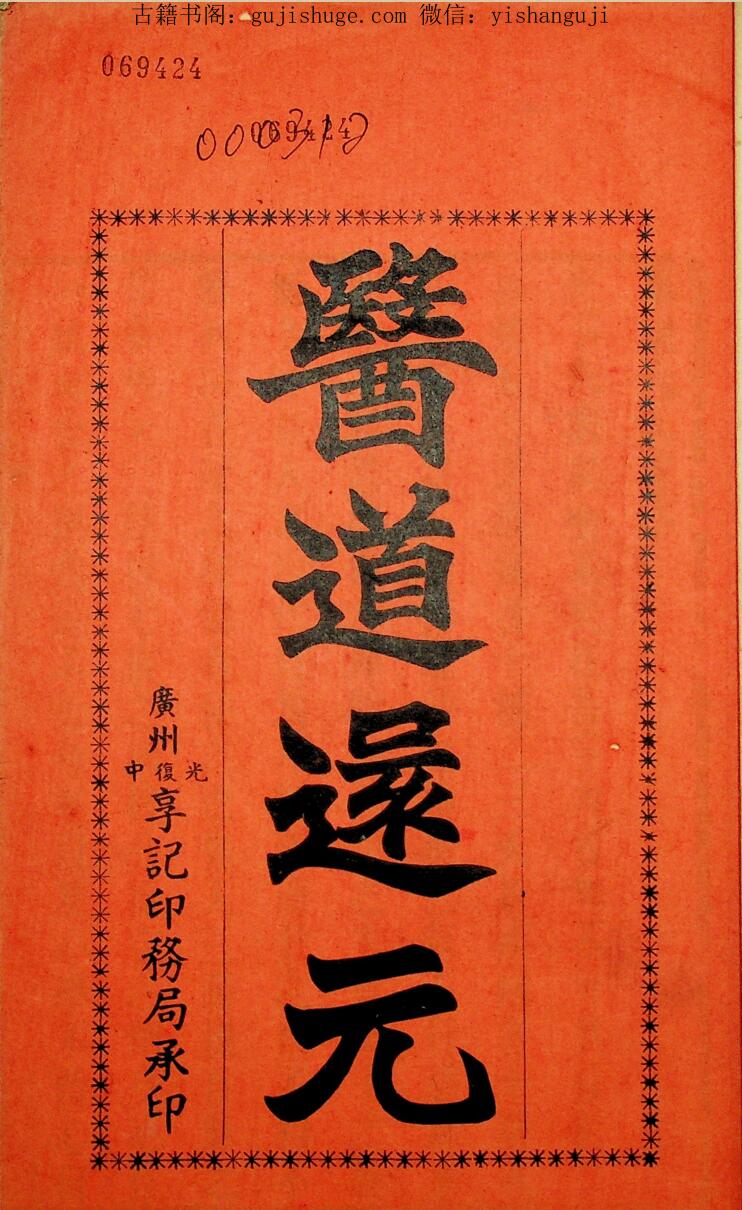 古籍书阁：gujishuge.com 微信：yishanguji
069424
069424
醫道還元
廣州
光復中
享記印務局承印